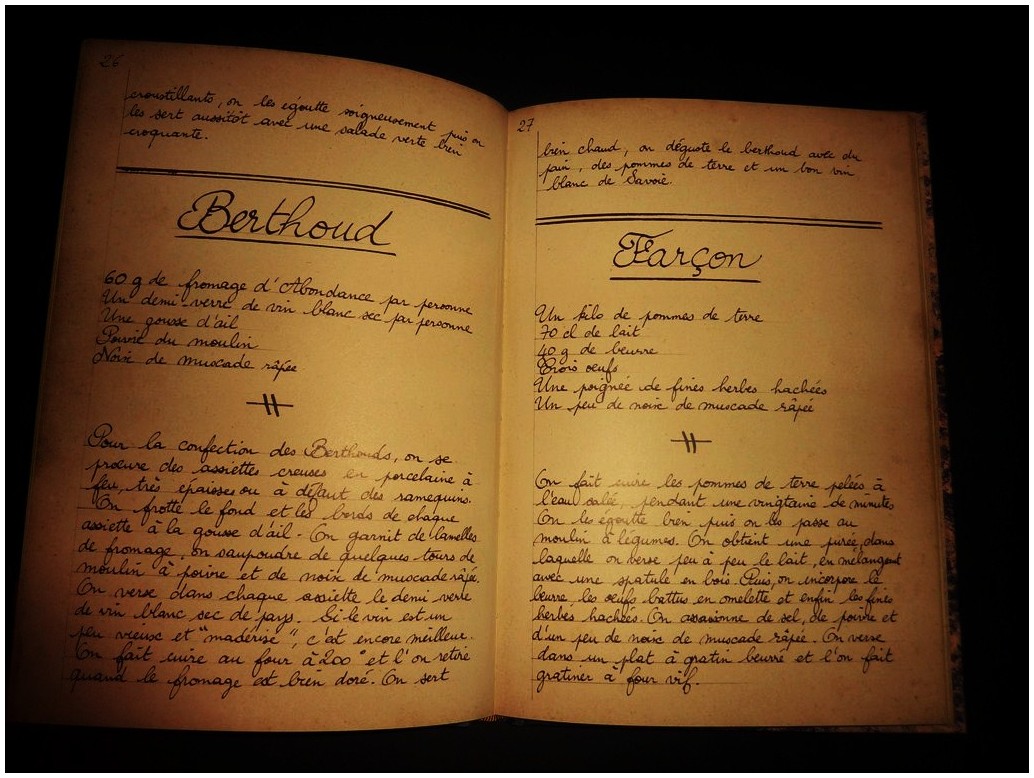 26
croustillants, on les égoutte soigneusement puis on
les sert aussitôt avec une salade verte bien
croquante.
Berthoud
60 g de fromage d'Abondance par personne
Un demi-verre de vin blanc sec par personne
Une gousse d'ail
Poivre du moulin
Noix de muscade râpée
Pour la confection des Berthouds, on se
procure des assiettes creuses en porcelaine à
feu, très épaisses ou à défaut des ramequins.
On frotte le fond et les bords de chaque
assiette à la gousse d'ail. On garnit de lamelles
de fromage, on saupoudre de quelques tours de
moulin à poivre et de noix de muscade râpée.
On verse dans chaque assiette le demi verre
de vin blanc sec de pays. Si le vin est un
peu vieux et "madérisé", c'est encore meilleur.
On fait cuire au four à 200° et l'on retire
quand le fromage est bien doré. On sert
27
bien chaud, on déguste le berthoud avec du
pain, des pommes de terre et un bon vin
blanc de Savoie.
Farçon
Un kilo de pommes de terre
70 cl de lait
40 g de beurre
Trois oeufs
Une poignée de fines herbes hachées
Un peu de noix de muscade râpée
On fait cuire les pommes de terre pelées à
l'eau salée, pendant une vingtaine de minutes
On les égoutte bien puis on les passe au
moulin à légumes. On obtient une purée, dans
laquelle on verse peu à peu le lait, en mélangeant
avec une spatule en bois. Puis, on incorpore le
beurre les oeufs battus en omelette et enfin les fines
herbes hachées. On assaisonne de sel, de poivre et
d'un peu de noix de muscade râpée. On verse
dans un plat à gratin beurré et l'on fait
gratiner à four vif.